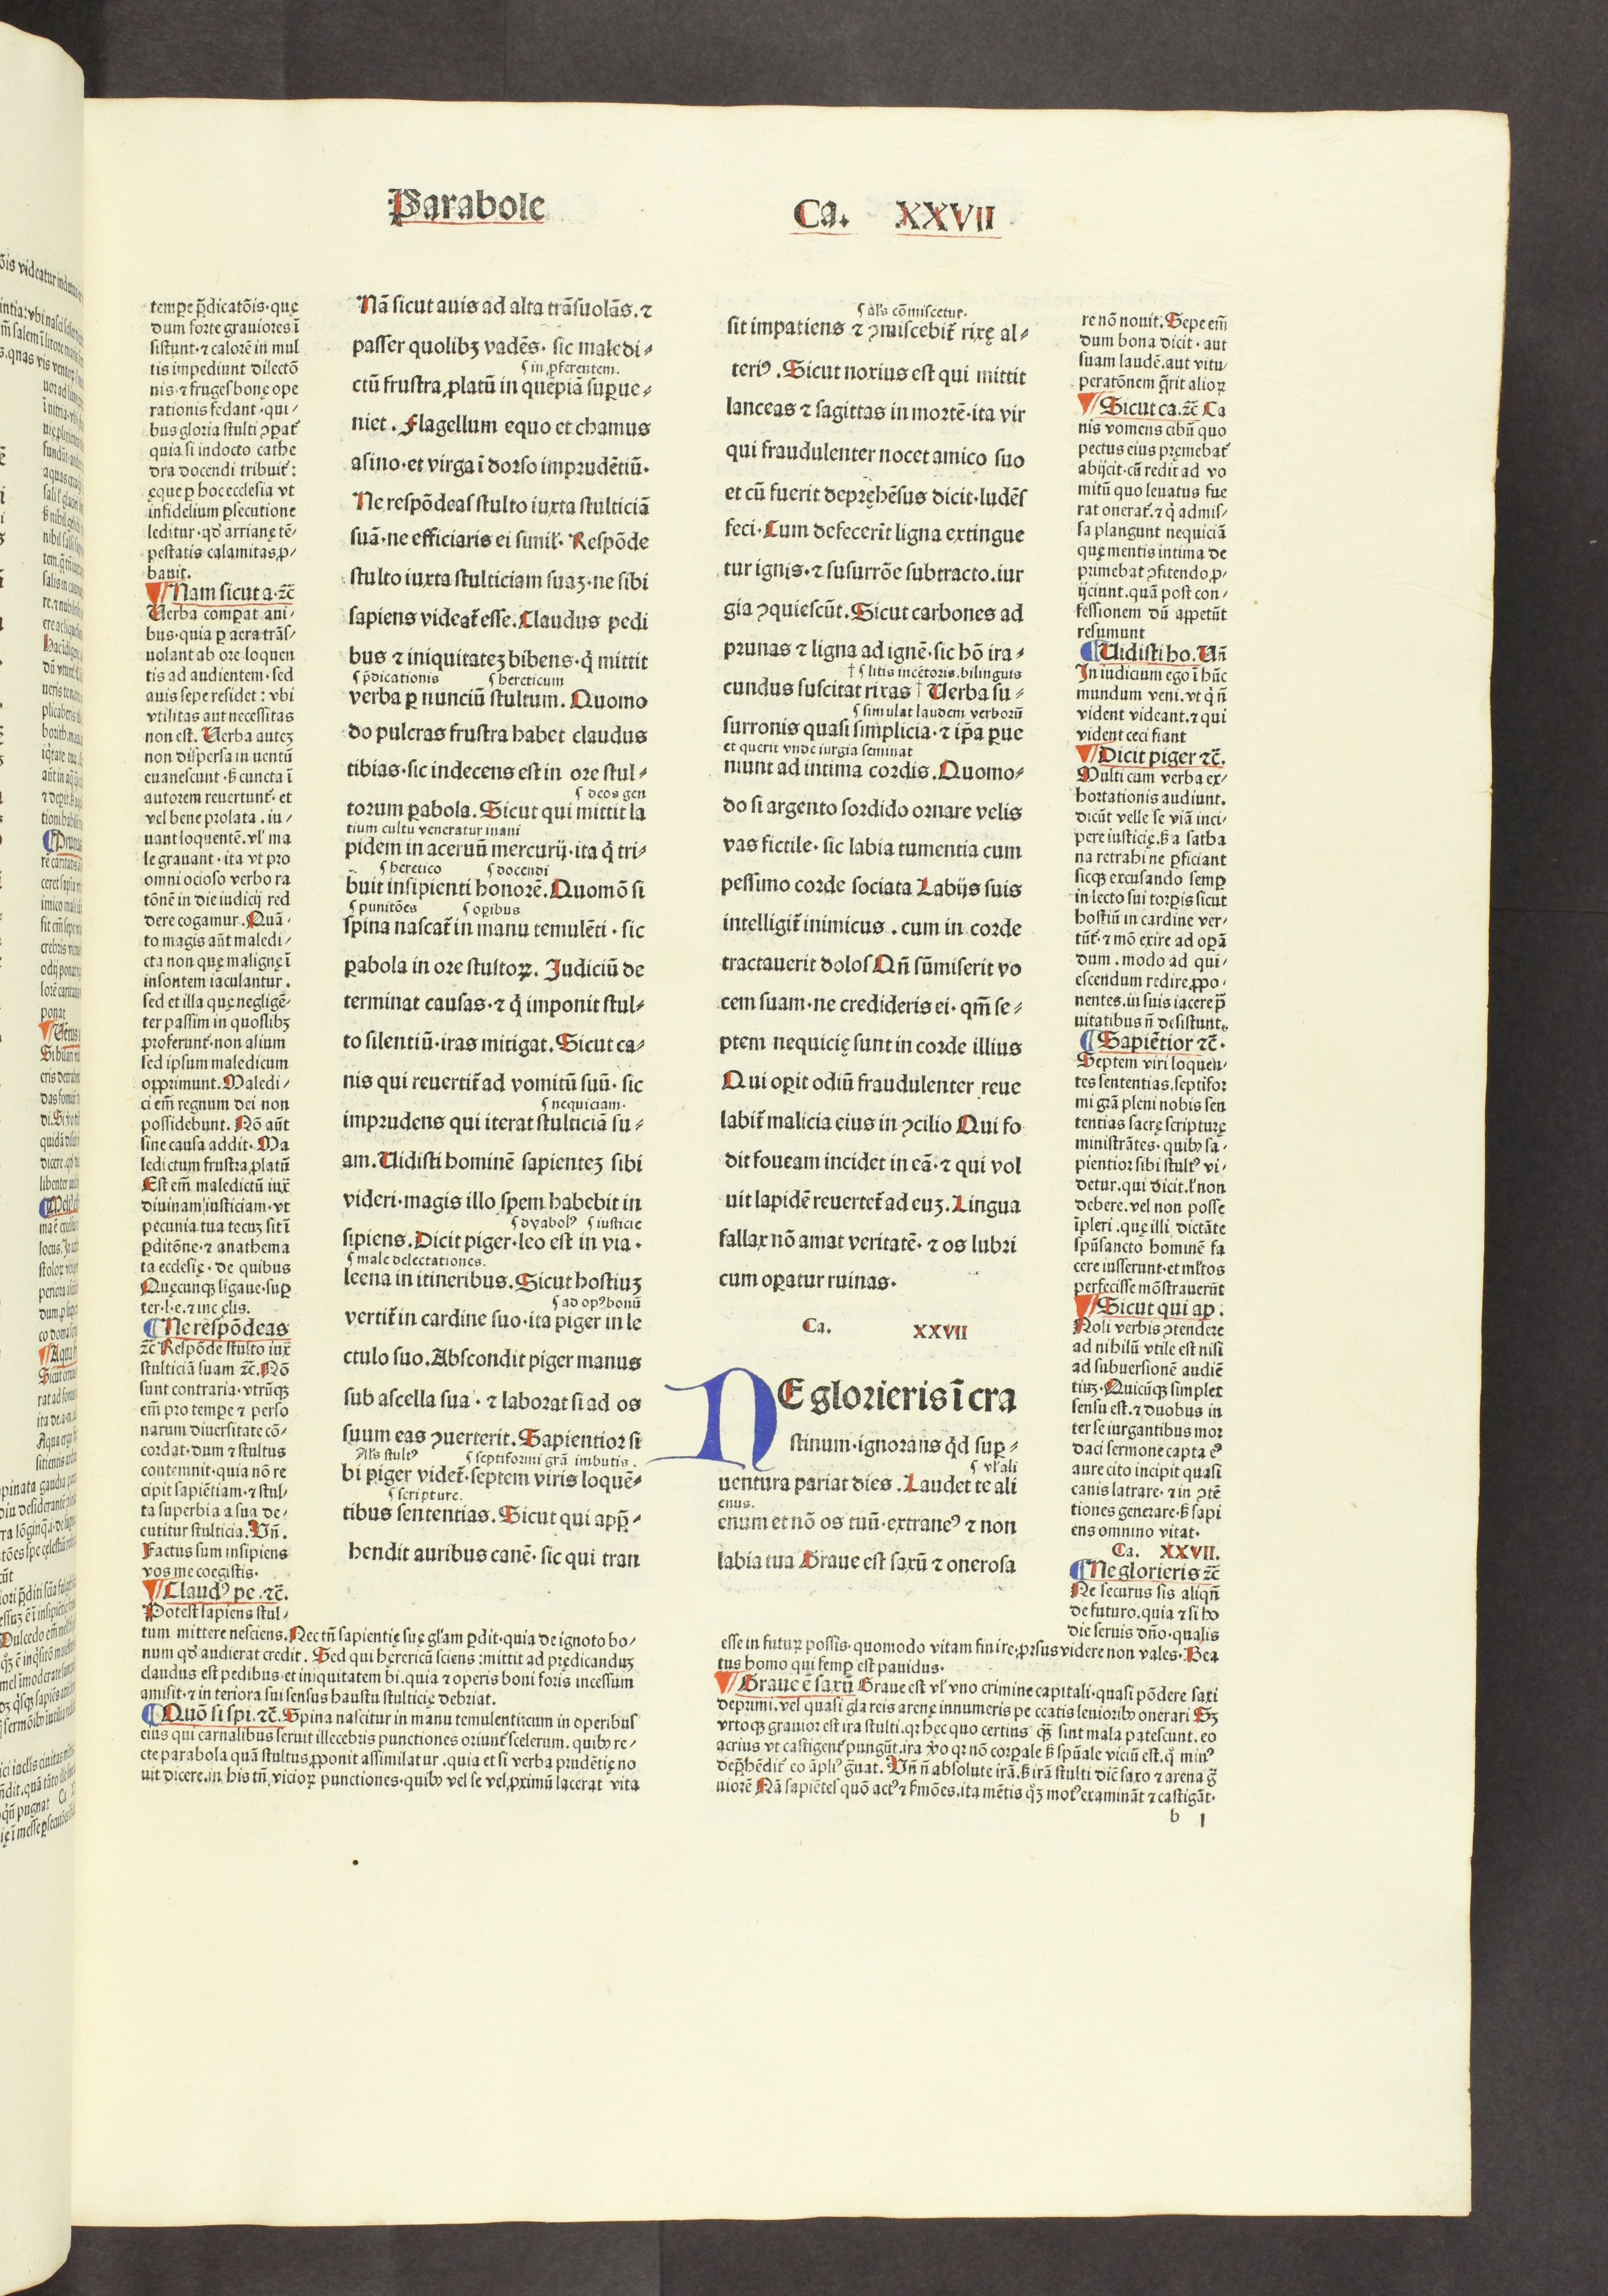 Parabole
Ca. XXVII
tempe p̄dicatōis·quę
dum forte grauiores ī
sistunt·⁊ calorē in mul
tis impediunt dilectō
nis·⁊ frugeſ bonę ope
rationis fedant·qui⸗
bus gloria stulti ꝯꝑat᷑
quia si indocto cathe
dra docendi tribuit᷑:
ęque ꝑ hoc ecclesia vt
infidelium ꝑsecutione
leditur·qđ arrianę tē⸗
pestatis calamitas ꝓ⸗
bauit.
Nam sicut a·⁊c̄
Uerba comꝑat aui⸗
bus·quia ꝑ aera trāſ⸗
uolant ab ore loquen
tis ad audientem·sed
auis sepe residet: vbi
vtilitas aut necessitas
non est. Uerba auteȝ
non dispersa in uentū
euanescunt·ſꝫ cuncta ī
autorem reuertunt᷑·et
vel bene prolata·iu⸗
uant loquentē·vl᷑ ma
le grauant·ita vt pro
omni ocioso verbo ra
tōnē in die iudicij red
dere cogamur. Quā⸗
to magis aūt maledi⸗
cta non quę malignę ī
insontem iaculantur.
sed et illa quę negligē⸗
ter passim in quoslibꝫ
proferunt᷑·non alium
sed ipsum maledicum
opprimunt. Maledi⸗
ci em̄ regnum dei non
possidebunt. Nō aūt
sine causa addit·Ma
ledictum frustra ꝓlatū
Est em̄ maledictū iux̄
diuinam iusticiam·vt
pecunia tua tecuȝ sit ī
ꝑditōne·⁊ anathema
ta ecclesię·de quibus
Quęcunqꝫ ligaue·suꝑ
ter·l·e·⁊ in c̨elis.
Ne respōdeas
⁊c̄ Respōde stulto iux̄
stulticiā suam ⁊c̄. Nō
sunt contraria·vtrūqꝫ
em̄ pro tempe ⁊ perso
narum diuersitate cō⸗
cordat·dum ⁊ stultus
contemnit·quia nō re
cipit sapiētiam·⁊ stul⸗
ta superbia a sua de⸗
cutitur stulticia. Vn̄.
Factus sum insipiens
vos me coegistis·
Claudꝰ pe·⁊c̄.
Potest sapiens stul⸗
tum mittere nesciens. Nec tn̄ sapientię suę gl̄am ꝑdit·quia de ignoto bo⸗
num qđ audierat credit. Sed qui hęrericū sciens :mittit ad prędicanduȝ
claudus est pedibus·et iniquitatem bi. quia ⁊ operis boni foris incessum
amisit·⁊ in teriora sui sensus haustu stulticię debriat.
Quō si spi·⁊c̄. Spina nascitur in manu temulenti:cum in operibuſ
eius qui carnalibus seruit illecebris punctiones oriunt᷑ scelerum. quibꝰ re⸗
cte parabola quā stultus ꝓponit assimilatur·quia et si verba prudētię no
uit dicere·in his tn̄ vicioꝝ punctiones·quibꝰ vel se vel ꝓximū lacerat vita
Nā sicut auis ad alta trāsuolās·⁊
passer quolibꝫ vadēs·sic maledi⸗
in ꝓferentem.
ctū frustra ꝓlatū in quēpiā suꝑue⸗
niet. Flagellum equo et chamus
asino·et virga ī dorso imprudētiū·
Ne respōdeaſ stulto iuxta stulticiā
suā·ne efficiaris ei simil᷑· Respōde
stulto iuxta stulticiam suaȝ·ne sibi
sapiens videat᷑ esse. Claudus pedi
bus ⁊ iniquitateȝ bibens·q̄ mittit
p̄dicationis hereticum
verba ꝑ nunciū stultum. Quomo
do pulcras frustra habet claudus
tibias·sic indecens est in ore stul⸗
deos gen
torum ꝑabola. Sicut qui mittit la
tium cultu veneratur inani
pidem in aceruū mercurij·ita q̄ tri⸗
heretico docendi
buit insipienti honorē. Quomō si
punitōes oꝑibus
spina nascat᷑ in manu temulēti·sic
ꝑabola in ore stultoꝝ. Judiciū de
terminat causas·⁊ q̄ imponit stul⸗
to silentiū·iras mitigat. Sicut ca⸗
nis qui reuertit᷑ ad vomitū suū·sic
nequiciam·
imprudens qui iterat stulticiā su⸗
am. Uidisti hominē sapienteȝ sibi
videri·magis illo spem habebit in
dyabolꝰ iusticie
sipiens. Dicit piger·leo est in via·
male delectationes.
leena in itineribus. Sicut hostiuȝ
ad opꝰ bonū
vertit᷑ in cardine suo·ita piger in le
ctulo suo. Abscondit piger manus
sub ascella sua·⁊ laborat si ad os
suum eas ꝯuerterit. Sapientior si
Al's stultꝰ septiformi grā imbutis.
bi piger videt᷑·septem viris loquē⸗
scripture.
tibus sententias. Sicut qui appr̄⸗
hendit auribus canē·sic qui tran
al's cōmiscetur·
sit impatiens ⁊ ꝯmiscebit᷑ rixę al⸗
teriꝰ. Sicut noxius est qui mittit
lanceas ⁊ sagittas in mortē·ita vir
qui fraudulenter nocet amico suo
et cū fuerit depręhēsus dicit·ludēſ
feci·Cum defecerīt ligna extingue
tur ignis·⁊ susurrōe subtracto·iur
gia ꝯquiescūt. Sicut carbones ad
prunas ⁊ ligna ad ignē·sic hō ira⸗
† litis incētoris.bilinguis
cundus suscitat rixas † Uerba su⸗
simulat laudem verborū
surronis quasi simplicia·⁊ ip̄a ꝑue
et querit vnde iurgia seminat
niunt ad intima cordis. Quomo⸗
do si argento sordido ornare velis
vas fictile·sic labia tumentia cum
pessimo corde sociata Labijs suis
intelligit᷑ inimicus. cum in corde
tractauerit doloſ Qn̄ sūmiserit vo
cem suam·ne credideris ei·qm̄ se⸗
ptem nequicię sunt in corde illius
Qui oꝑit odiū fraudulenter reue
labit᷑ malicia eius in ꝯcilio Qui fo
dit foueam incidet in eā·⁊ qui vol
uit lapidē reuertet᷑ ad euȝ. Lingua
fallax nō amat veritatē·⁊ os lubri
cum oꝑatur ruinas·
Ca. XXVII
NE glorieris ī cra
stinum·ignorans q̄d suꝑ⸗
vl᷑ ali
uentura pariat dies. Laudet te ali
enus.
enum et nō os tuū·extraneꝰ ⁊ non
labia tua Graue est saxū ⁊ onerosa
esse in futuꝝ possis·quomodo vitam finire ꝓrsus videre non vales·Bea
tus homo qui semꝑ est pauidus·
Graue ē saxū Graue est vl᷑ vno crimine capitali·quasi pōdere saxi
deprimi·vel quasi gla reis arenę innumeris pe ccatis leuioribꝰ onerari Sꝫ
vrtoqꝫ grauior est ira stulti·qꝛ hec quo certius qꝫ sint mala patescunt·eo
acrius vt castigent᷑ pungūt.ira v̊o qꝛ nō corꝑale ſꝫ spūale viciū est·q̊ minꝰ
dep̄hēdit᷑ eo āpliꝰ ḡuat. Vn̄ n̄ absolute irā·ſꝫ irā stulti dic̄ saxo ⁊ arena ḡ
uiorē Nā sapiēteſ quō actꝰ ⁊ ẜmōes·ita mētis qꝫ motꝰ examināt ⁊ castigāt·
b 1
re nō nouit. Sepe em̄
dum bona dicit·aut
suam laudē·aut vitu⸗
peratōnem q̄rit alioꝝ
Sicut ca·⁊c̄ Ca
nis vomens cibū quo
pectus eius pręmebat᷑
abijcit·cū redit ad vo
mitū quo leuatus fue
rat onerat᷑·⁊ q̄ admis⸗
sa plangunt nequiciā
quę mentis intima de
primebat ꝯfitendo ꝓ⸗
ijciunt·quā post con⸗
fessionem dū appetūt
resumunt
Uidisti ho. Un̄
In iudicium ego ī hūc
mundum veni·vt q̄ n̄
vident videant·⁊ qui
vident ceci fiant
Dicit piger ⁊c̄.
Multi cum verba ex⸗
hortationis audiunt.
dicūt velle se viā inci⸗
pere iusticię·ſꝫ a satha
na retrahi ne ꝑficiant
sicqꝫ excusando semꝑ
in lecto sui torꝑis sicut
hostiū in cardine ver⸗
tūt᷑·⁊ mō exire ad oꝑā
dum·modo ad qui⸗
escendum redire ꝓpo⸗
nentes·in suis iacere p̄
uitatibus n̄ desistunt.
Sapiētior ⁊c̄·
Septem viri loquen⸗
tes sententias·septifor
mi grā pleni nobis sen
tentias sacrę scripturę
ministrātes·quibꝰ sa⸗
pientior sibi stultꝰ vi⸗
detur·qui dicit·l᷑ non
debere·vel non posse
īpleri·quę illi dictāte
spūsancto hominē fa
cere iusserunt·et ml᷑tos
perfecisse mōstrauerūt
Sicut qui ap·
Noli verbis ꝯtendere
ad nihilū vtile est nisi
ad subuersionē audiē
tiuȝ·Quicūqꝫ simplex
sensu est·⁊ duobus in
ter se iurgantibus mor
daci sermone capta eꝰ
aure cito incipit quasi
canis latrare·⁊ in ꝯtē
tiones generare·ſꝫ sapi
ens omnino vitat·
Ca. XXVII.
Ne glorieris ⁊c̄
Ne securus sis aliqn̄
de futuro·quia ⁊ si ho
die seruis dn̄o·qualis